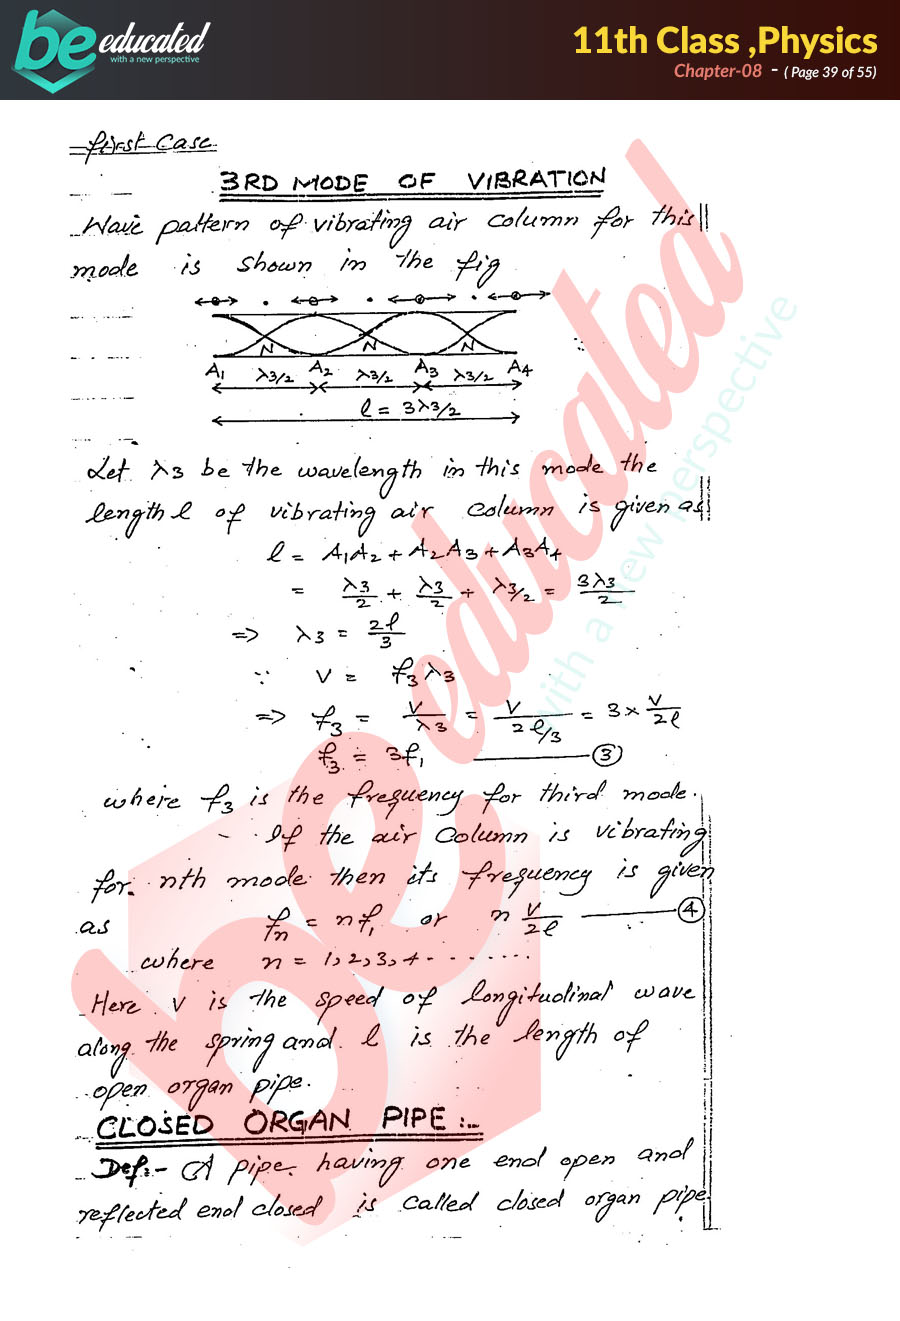 be educated
with a new perspective
11th Class ,Physics
Chapter-08 - ( Page 39 of 55)
first Case
3RD MODE OF VIBRATION
Wave pattern of vibrating air column for this
mode is shown in the fig
N N N
A1 λ3/2 A2 λ3/2 A3 λ3/2 A4
l = 3λ3/2
Let λ3 be the wavelength in this mode the
length l of vibrating air column is given as
l = A1A2 + A2A3 + A3A4
= λ3/2 + λ3/2 + λ3/2 = 3λ3/2
=> λ3 = 2l/3
∵ v = f3λ3
=> f3 = v/λ3 = v/2l/3 = 3 × v/2l
f3 = 3f1 ③
where f3 is the frequency for third mode.
If the air column is vibrating
for nth mode then its frequency is given
as fn = nf1 or n v/2l ④
where n = 1,2,3,4 - - - - - - - -
Here v is the speed of longitudinal wave
along the spring and l is the length of
open organ pipe.
CLOSED ORGAN PIPE :-
Def:- A pipe having one end open and
reflected end closed is called closed organ pipe
be educated
with a new perspective